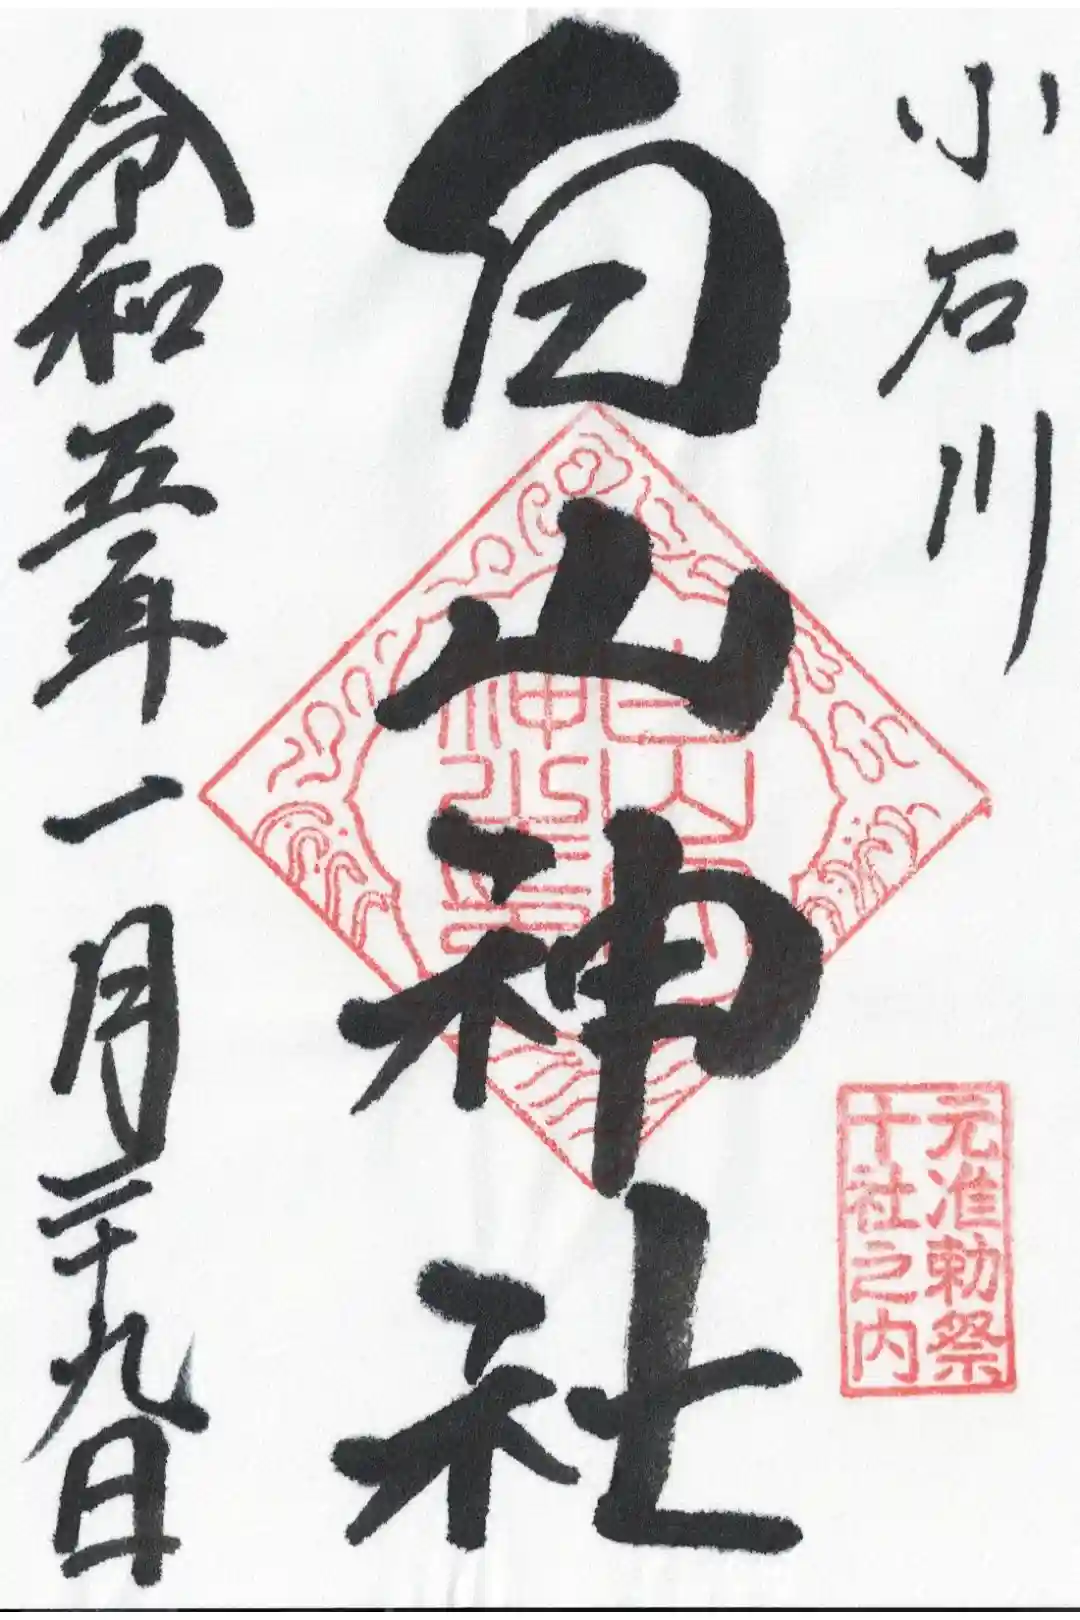 小石川
白山神社
令和五年一月二十九日
元准勅祭
十社之内